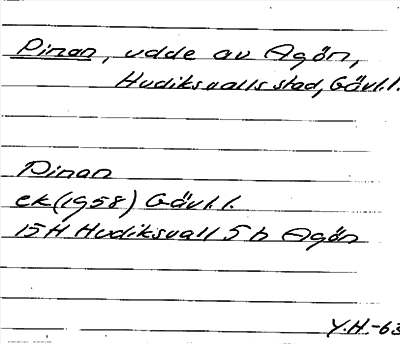 Pinan, udde av Agön,
Hudiksvalls stad, Gävl.l.
Pinan
ek (1958) Gävl.l.
15H Hudiksvall 5 b Agön
Y.H.-63